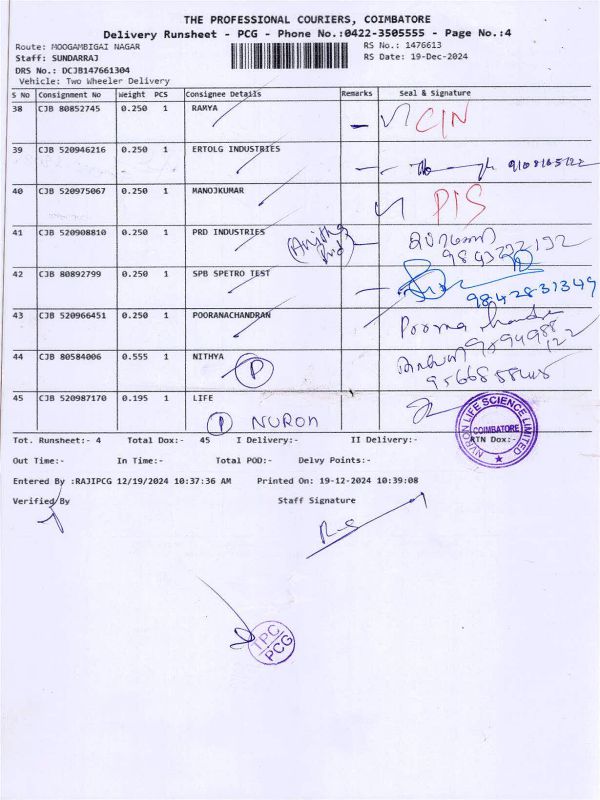 THE PROFESSIONAL COURIERS, COIMBATORE
Delivery Runsheet - PCG - Phone No.:0422-3505555 - Page No.:4
Route: MOOGAMBIGAI NAGAR RS No.: 1476613
Staff: SUNDARRAJ RS Date: 19-Dec-2024
DRS No.: DCJB147661304
Vehicle: Two Wheeler Delivery
S No Consignment No Weight PCS Consignee Details Remarks Seal & Signature
38 CJB 80852745 0.250 1 RAMYA CIN
39 CJB 520946216 0.250 1 ERTOLG INDUSTRIES
40 CJB 520975067 0.250 1 MANOJKUMAR PIS
41 CJB 520908810 0.250 1 PRD INDUSTRIES
42 CJB 80892799 0.250 1 SPB SPETRO TEST 9842831349
43 CJB 520966451 0.250 1 POORANACHANDRAN
44 CJB 80584006 0.555 1 NITHYA P
45 CJB 520987170 0.195 1 LIFE
NURON
NURON LIFE SCIENCE LIMITED
COIMBATORE
Tot. Runsheet:- 4 Total Dox:- 45 I Delivery:- II Delivery:- RTN Dox:-
Out Time:- In Time:- Total POD:- Delvy Points:-
Entered By :RAJIPCG 12/19/2024 10:37:36 AM Printed On: 19-12-2024 10:39:08
Verified By Staff Signature
TPC
PCG